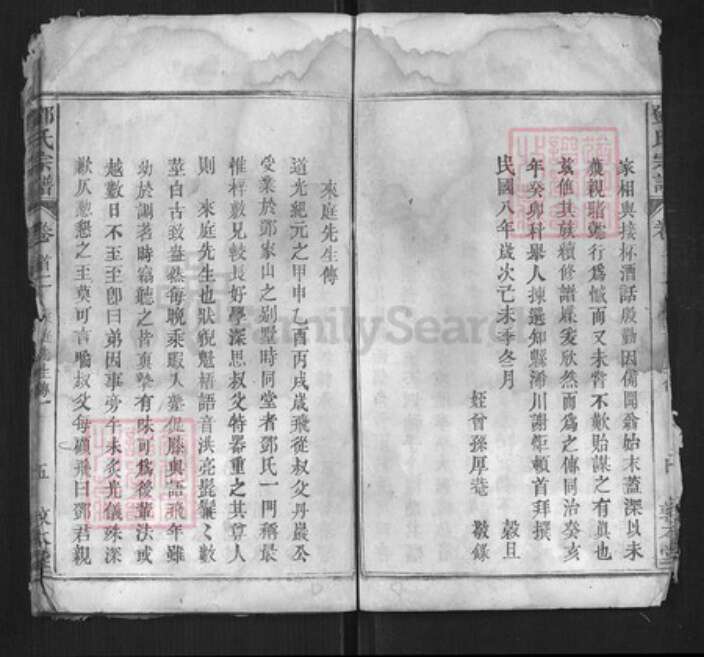 家相與接杯酒話殷勤因備聞翁始末蓋深以未
獲親賭懿行爲憾而又未嘗不歎貽謀之有眞也
茲値其族續修譜牒爰欣然而爲之傳同治癸亥
年癸卯科舉人揀選知縣浠川謝
頓首拜撰
民國八年歲次己未季冬月
穀旦
姪曾孫厚菴
敬錄
來庭先生傳
道光紀元之甲申乙酉丙戌歲飛從叔父丹巖公
受業於鄧家山之别墅時同堂者鄧氏一門稱最
惟梓敷兄較長好學深思叔父特器重之其尊人
則 來庭先生也狀貌魁梧語音洪亮髭鬚〻數
莖白古致盎然每晚乘暇人
與語飛年雖
幼於講書時竊聽之皆眞摯有味可爲後輩法或
越數日不至至卽曰弟因事旁午未炙光儀殊深
歉仄懇懇之至莫可言喻叔父每顧飛曰鄧君親
鄧氏宗譜
卷首二
來庭先生傳
五
敦本堂
鄧氏宗譜
卷
FamilySearch